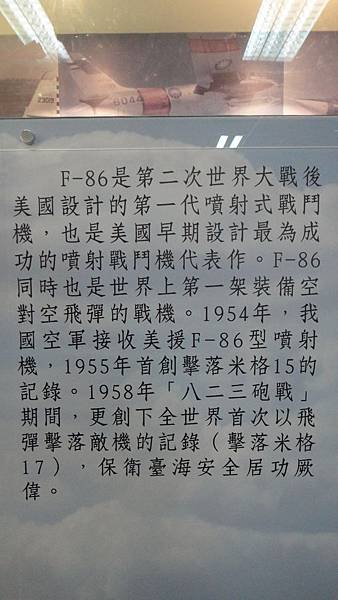 6044
F-86是第二次世界大戰後
美國設計的第一代噴射式戰鬥
機，也是美國早期設計最為成
功的噴射戰鬥機代表作。F-86
同時也是世界上第一架裝備空
對空飛彈的戰機。1954年，我
國空軍接收美援F-86型噴射
機，1955年首創擊落米格15的
記錄。1958年「八二三砲戰」
期間，更創下全世界首次以飛
彈擊落敵機的記錄（擊落米格
17），保衛臺海安全居功厥
偉。